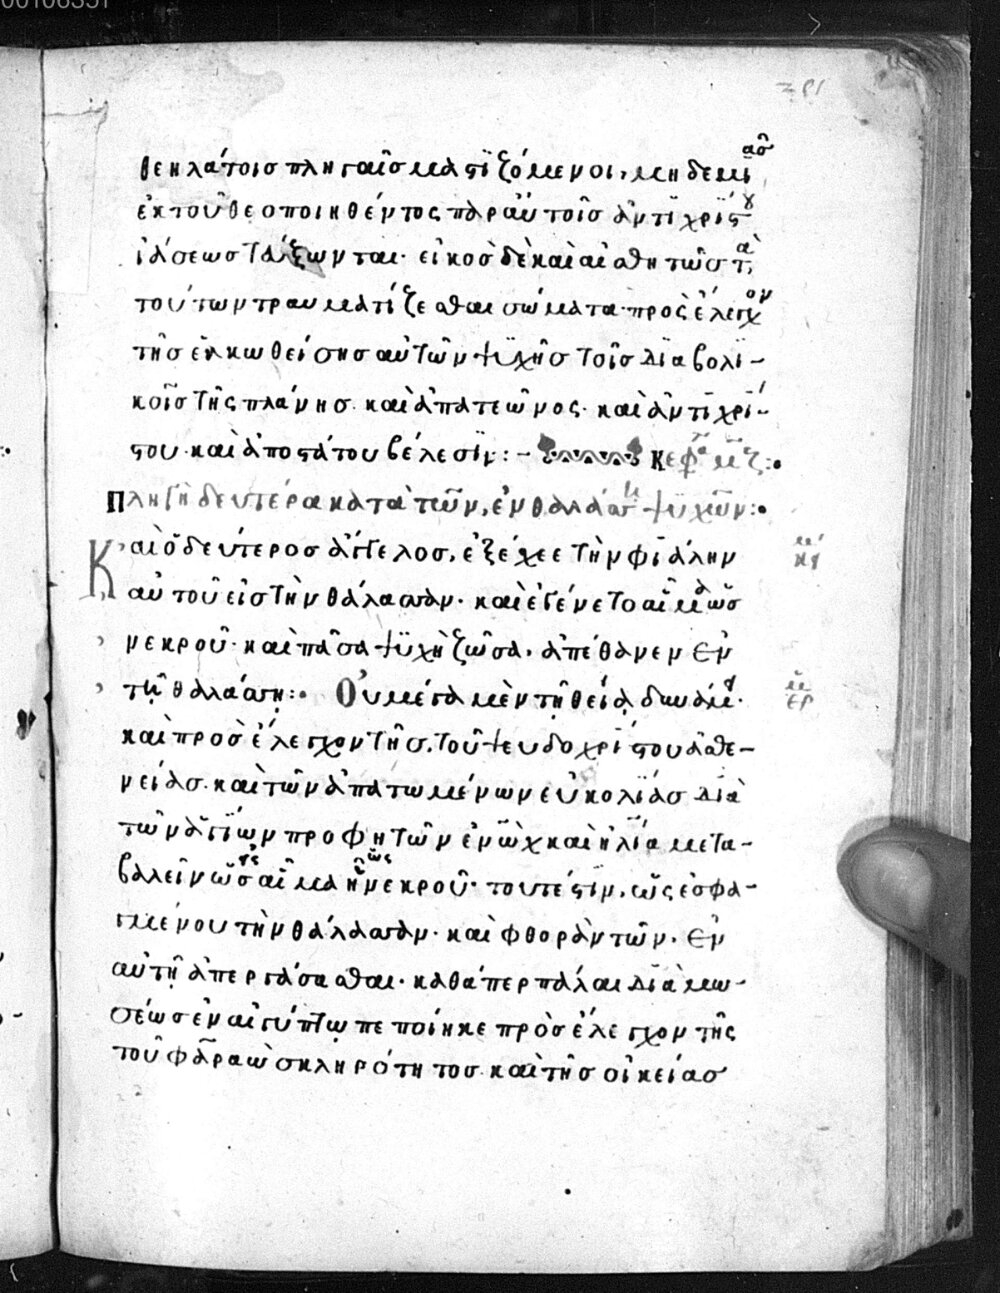 θεηλάτοισ πληγαῖσ μαστιζόμενοι, μηδεμιασ
ἐκ τοῦ θεοποιηθέντος παραὐτοῖσ ἀντιχρίστου
ἰάσεωσ τεύξωνται· εἰκοσ δὲ καὶ αἰσθητῶσ τὰ
τούτων τραυματίζεσθαι σώματα· πρὸς ἔλεγχον
τῆσ ἑλκωθείσησ αὐτῶν ψυχῆσ τοῖσ διαβολι-
κοῖσ τῆς πλάνησ καὶ ἀπατεῶνος· καὶ ἀντιχρί-
στου καὶ ἀποστάτου βέλεσιν:- Κεφ μζ:
Πληγὴ δευτέρα κατὰ τῶν, ἐν θαλάσση ψυχῶν:
Καὶ ὁ δεύτεροσ ἄγγελοσ, ἐξέχεε τὴν φιάλην
αὐτοῦ εἰσ τὴν θάλασσαν· καὶ ἐγένετο αἷμα ὡσ
νεκροῦ· καὶ πᾶσα ψυχὴ ζῶσα, ἀπέθανεν ἐν
τῇ θαλάσσῃ: Οὐ μέγα μὲν τῇ θείᾳ δυνάμει·
καὶ προσ ἔλεγχον τῆσ, τοῦ ψευδοχρίστου ἀσθε-
νείασ· καὶ τῶν ἀπατωμένων εὐκολίασ διὰ
τῶν ἁγίων προφητῶν ἐνὼχ καὶ ἠλία μετα-
βαλεῖν ὥστε αἷμα ἢ ὡς νεκροῦ· τουτέστιν, ὡς ἐσφα-
γμένου τὴν θάλασσαν· καὶ φθορὰν τῶν, ἐν
αὐτῇ ἀπεργάσασθαι· καθάπερ πάλαι διὰ μω-
σέωσ ἐν αἰγύπτω πεποίηκε πρὸσ ἔλεγχον τῆς
τοῦ φαραὼ σκληρότητοσ καὶ τῆσ οἰκείασ